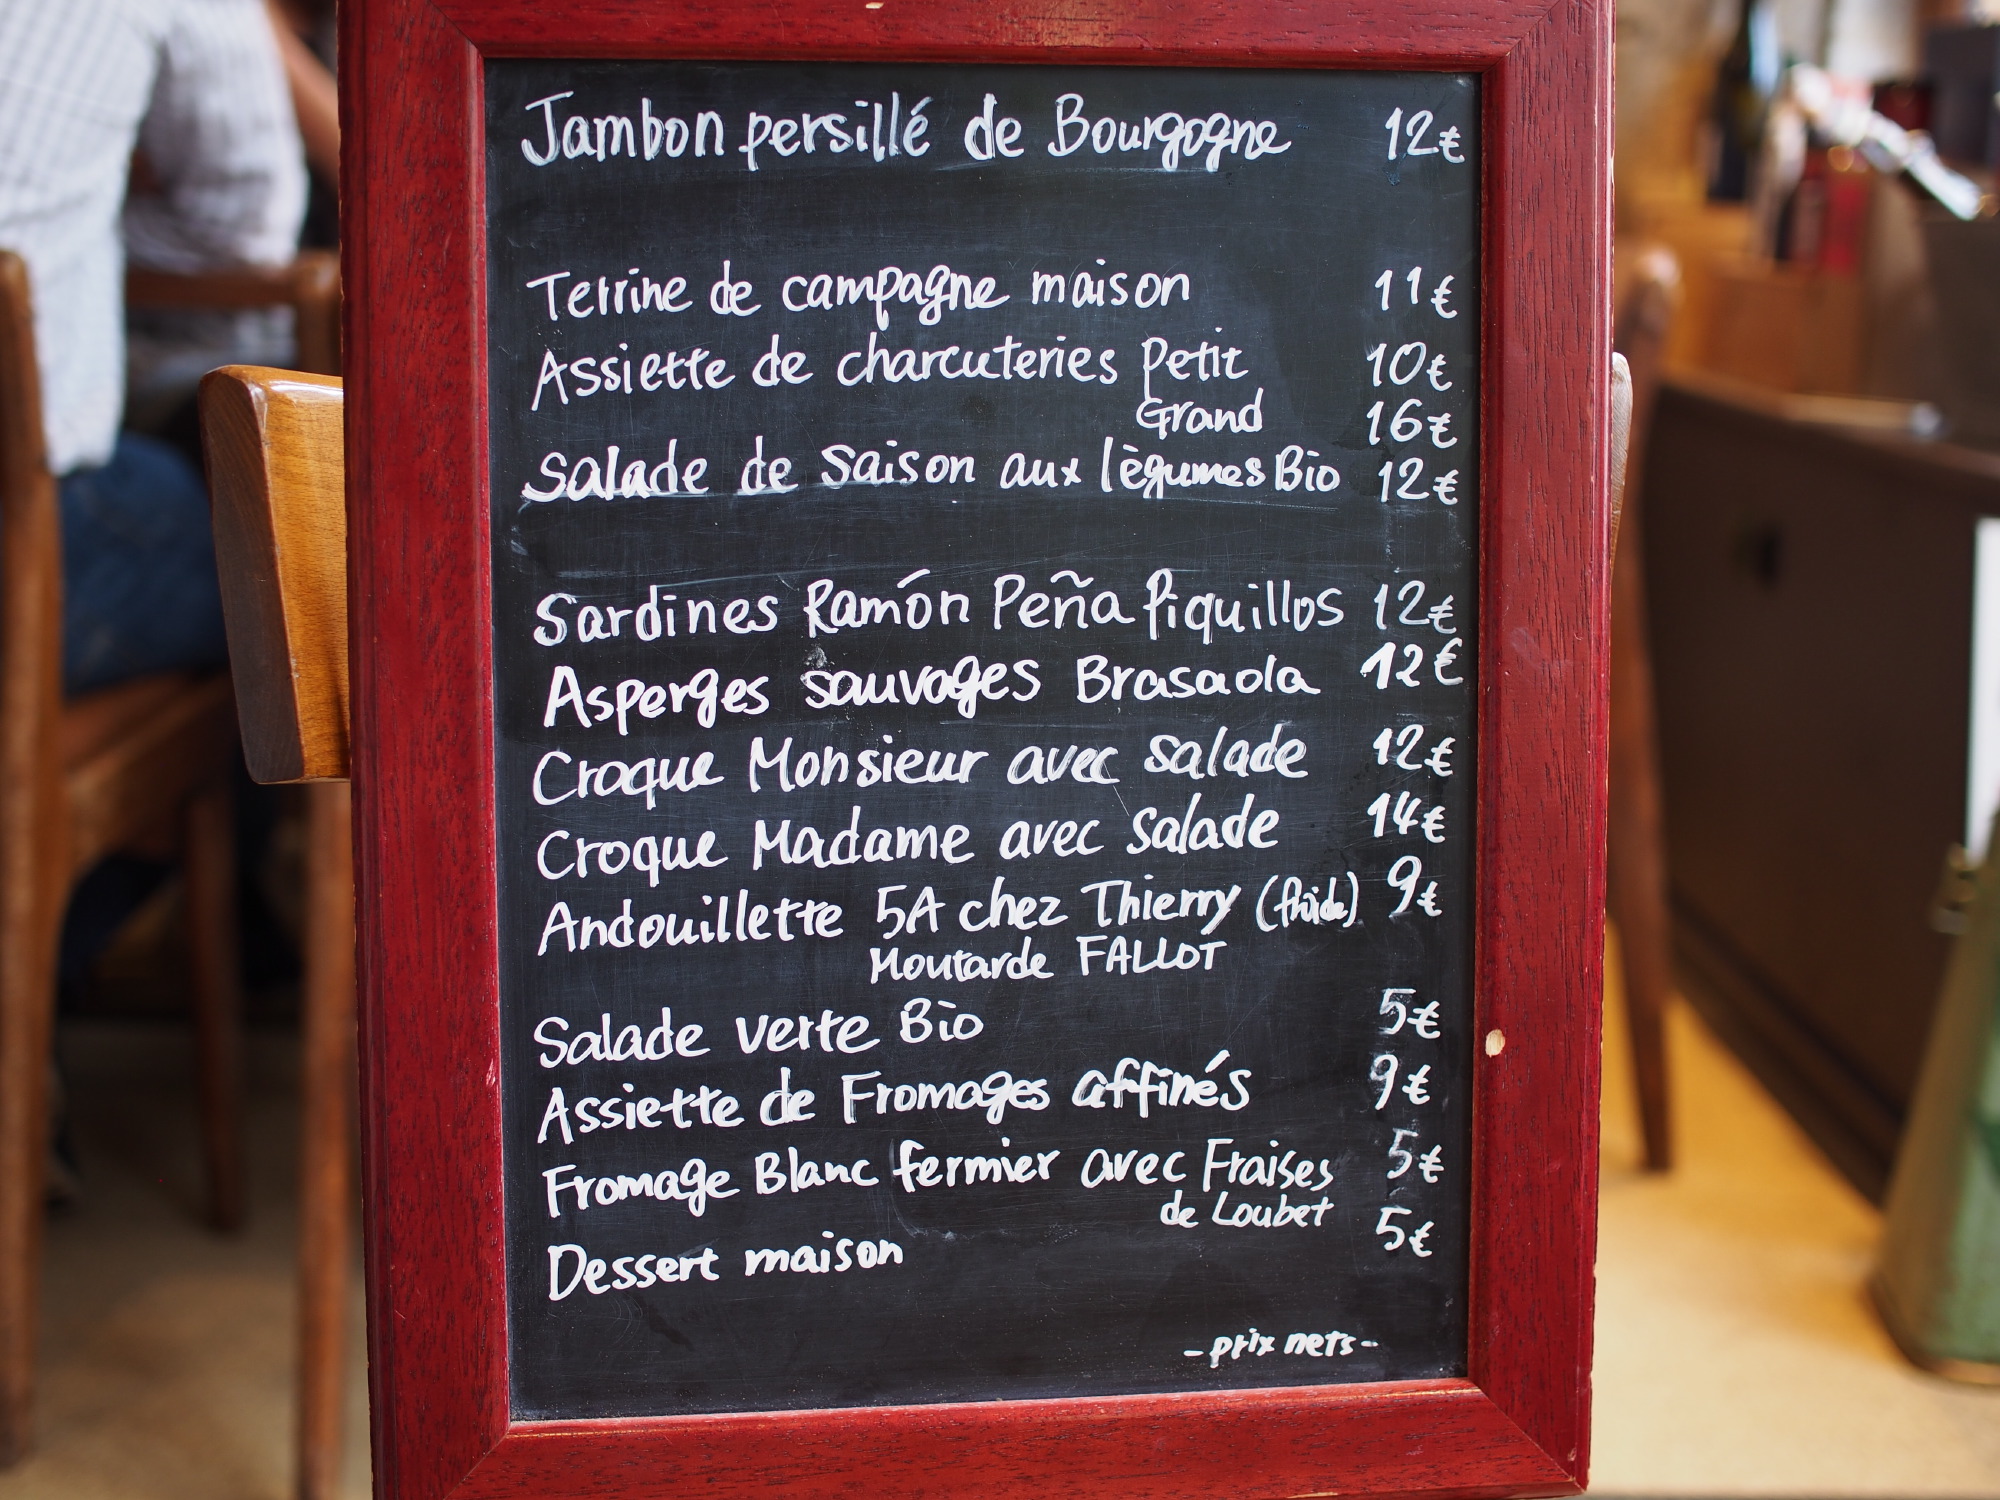 Jambon persillé de Bourgogne 12€
Terrine de campagne maison 11€
Assiette de charcuteries Petit 10€
Grand 16€
Salade de saison aux lègumes Bio 12€
Sardines Ramón Peña Piquillos 12€
Asperges sauvages Brasaola 12€
Croque Monsieur avec salade 12€
Croque Madame avec salade 14€
Andouillette 5A chez Thierry (froide) 9€
Moutarde FALLOT
Salade verte Bio 5€
Assiette de Fromages affinés 9€
Fromage Blanc fermier avec Fraises 5€
de Loubet
Dessert maison 5€
-prix nets-